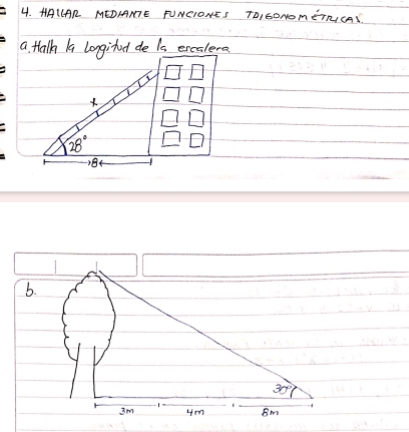 4. HALLAR MEDIANTE FUNCIONES TRIGONOMÉTRICAS.
a. Halla la longitud de la escalera
x
28°
8
b.
30°
3m 4m 8m